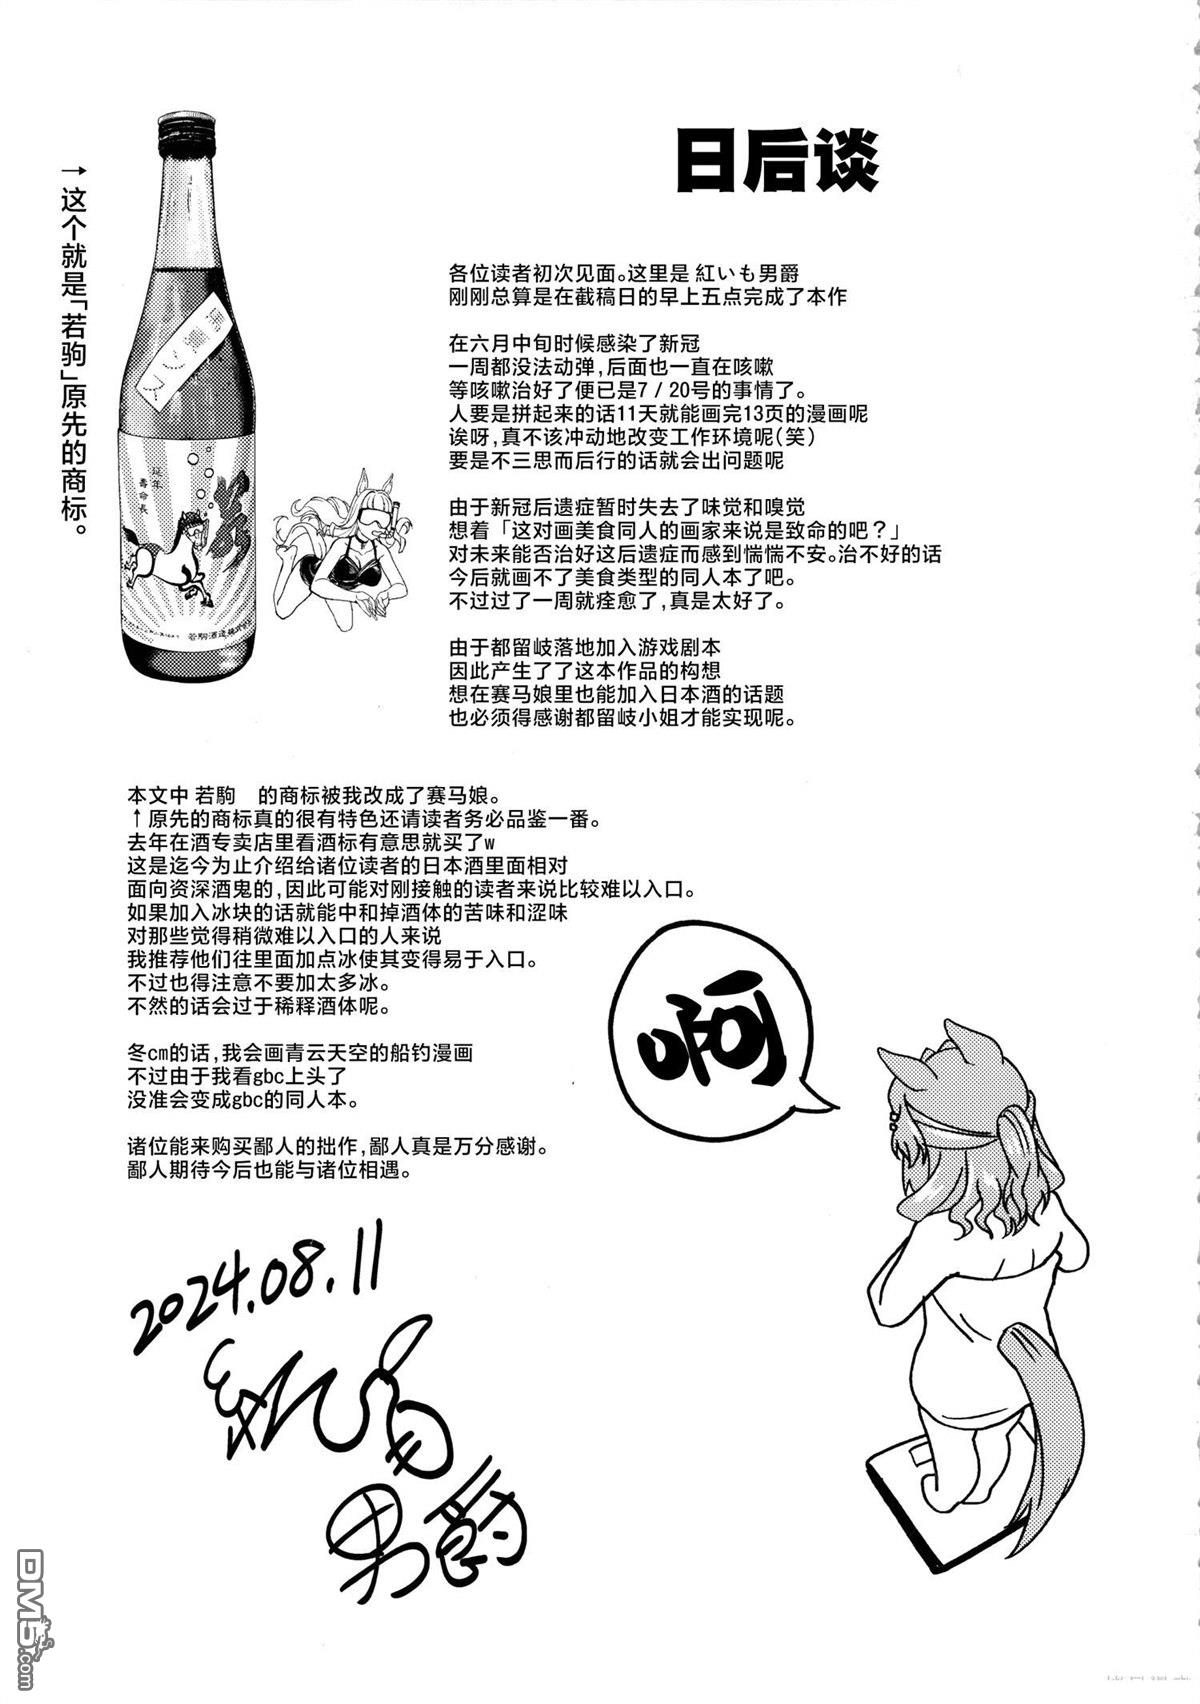 日后谈
→这个就是「若驹」原先的商标。
延年
壽命長
若駒酒造株式会社
各位读者初次见面。这里是 紅いも男爵
刚刚总算是在截稿日的早上五点完成了本作
在六月中旬时候感染了新冠
一周都没法动弹,后面也一直在咳嗽
等咳嗽治好了便已是7/20号的事情了。
人要是拼起来的话11天就能画完13页的漫画呢
诶呀,真不该冲动地改变工作环境呢(笑)
要是不三思而后行的话就会出问题呢
由于新冠后遗症暂时失去了味觉和嗅觉
想着「这对画美食同人的画家来说是致命的吧？」
对未来能否治好这后遗症而感到惴惴不安。治不好的话
今后就画不了美食类型的同人本了吧。
不过过了一周就痊愈了,真是太好了。
由于都留岐落地加入游戏剧本
因此产生了了这本作品的构想
想在赛马娘里也能加入日本酒的话题
也必须得感谢都留岐小姐才能实现呢。
本文中 若駒 的商标被我改成了赛马娘。
↑原先的商标真的很有特色还请读者务必品鉴一番。
去年在酒专卖店里看酒标有意思就买了w
这是迄今为止介绍给诸位读者的日本酒里面相对
面向资深酒鬼的,因此可能对刚接触的读者来说比较难以入口。
如果加入冰块的话就能中和掉酒体的苦味和涩味
对那些觉得稍微难以入口的人来说
我推荐他们往里面加点冰使其变得易于入口。
不过也得注意不要加太多冰。
不然的话会过于稀释酒体呢。
冬cm的话,我会画青云天空的船钓漫画
不过由于我看gbc上头了
没准会变成gbc的同人本。
诸位能来购买鄙人的拙作,鄙人真是万分感谢。
鄙人期待今后也能与诸位相遇。
啊
2024.08.11
紅いも
男爵
DM5.com